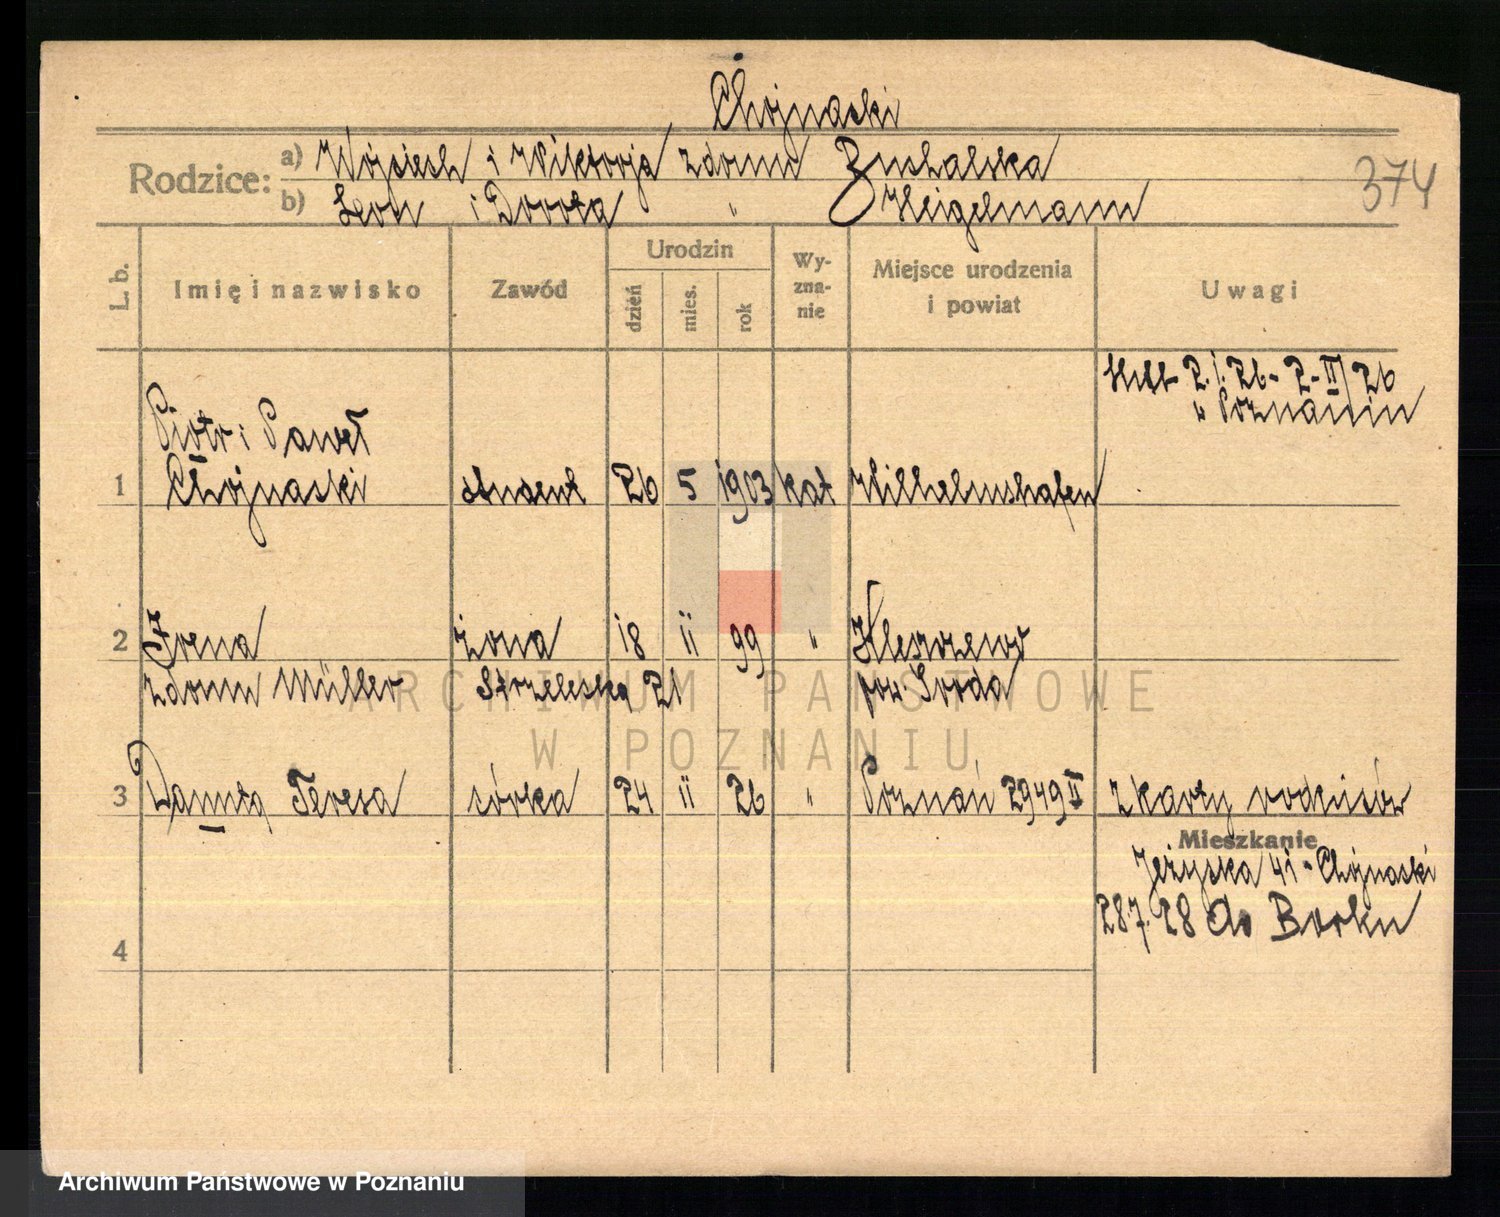 Chojnacki
Rodzice:
a) Wojciech i Wiktorja z domu
b) Leon i Dorota " Heigelmann
374
L. b.
Imię i nazwisko
Zawód
Urodzin
dzień
mies.
rok
Wy-
zna-
nie
Miejsce urodzenia
i powiat
Uwagi
2.I.26 - 2-II/26
" Poznaniu
Piotr i Paweł
1 Chojnacki student 26 5 1903 kat Wilhelmshafen
2 Irena żona 18 11 99 " Kleszczewo
z domu Müller Strzelecka 21 pow. Środa
3 Danuta Teresa córka 24 11 26 " Poznań 2949 II z karty rodziców
Mieszkanie
Jeżycka 41 - Chojnacki
28.7.28 do Borku
4
ARCHIWUM PAŃSTWOWE
W POZNANIU
Archiwum Państwowe w Poznaniu